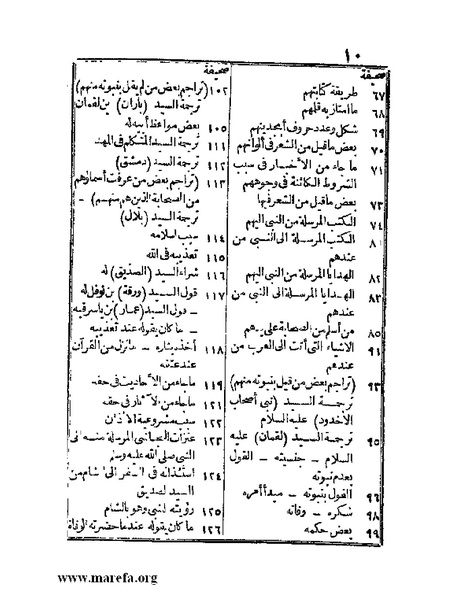 ١٠
صحيفة
٦٧ طريقة كتابتهم
٦٨ ما امتاز به قلمهم
٦٩ شكل وعدد حروف أبجديتهم
٧٠ بعض ما قيل من الشعر في ألوانهم
٧١ ما جاء من الأخبار في سبب
الشروط الكائنة في وجوههم
٧٣ بعض ما قيل من الشعر فيها
٧٤ الكتب المرسلة من النبي اليهم
٨١ الكتب المرسلة الى النبي من
عندهم
٨٢ الهدايا المرسلة من النبي اليهم
٨٣ الهدايا المرسلة الى النبي من
عندهم
٨٥ من أسلم من الصحابة على يديهم
٩١ الاشياء التي أتت الى العرب من
عندهم
٩٣ (تراجم بعض من قيل بنبوته منهم)
ترجمة السيد (نبي أصحاب
الاخدود) عليه السلام
٩٥ ترجمة السيد (لقمان) عليه
السلام - جنسيته - القول
بعدم نبوته
٩٦ القول بنبوته - مبدأ أمره
٩٨ شكره - وفاته
٩٩ بعض حكمه
صحيفة
١٠٢ (تراجم بعض من لم يقل بنبوته منهم)
ترجمة السيد (باران) بن لقمان
١٠٥ بعض مواعظ أبيه له
١١١ ترجمة السيد المتكلم في المهد
١١٢ ترجمة السيد (دمشق)
١١٣ (تراجم بعض من عرفت أسماؤهم
من الصحابة الذين هم منهم) -
ترجمة السيد (بلال)
١١٤ سبب اسلامه
١١٥ تعذيبه في الله
١١٦ شراء السيد (الصديق) له
١١٧ قول السيد (ورقة) بن نوفل له
- قول السيد (عمار) بن ياسر فيه
- ما كان يقوله عند تعذيبه
١١٨ أخذ بثاره - ما نزل من القرآن
عند عتقه
١١٩ ما جاء من الأحاديث في حقه
١٢١ ما جاء من الآثار في حقه
١٢٢ سبب مشروعية الاذان
١٢٣ المرسلة منه الى
النبي صلى الله عليه وسلم
١٢٤ استئذانه في السفر الى الشام من
السيد الصديق
١٢٥ رؤيته للنبي وهو بالشام
١٢٦ ما كان يقوله عند ما حضرته الوفاة
www.marefa.org